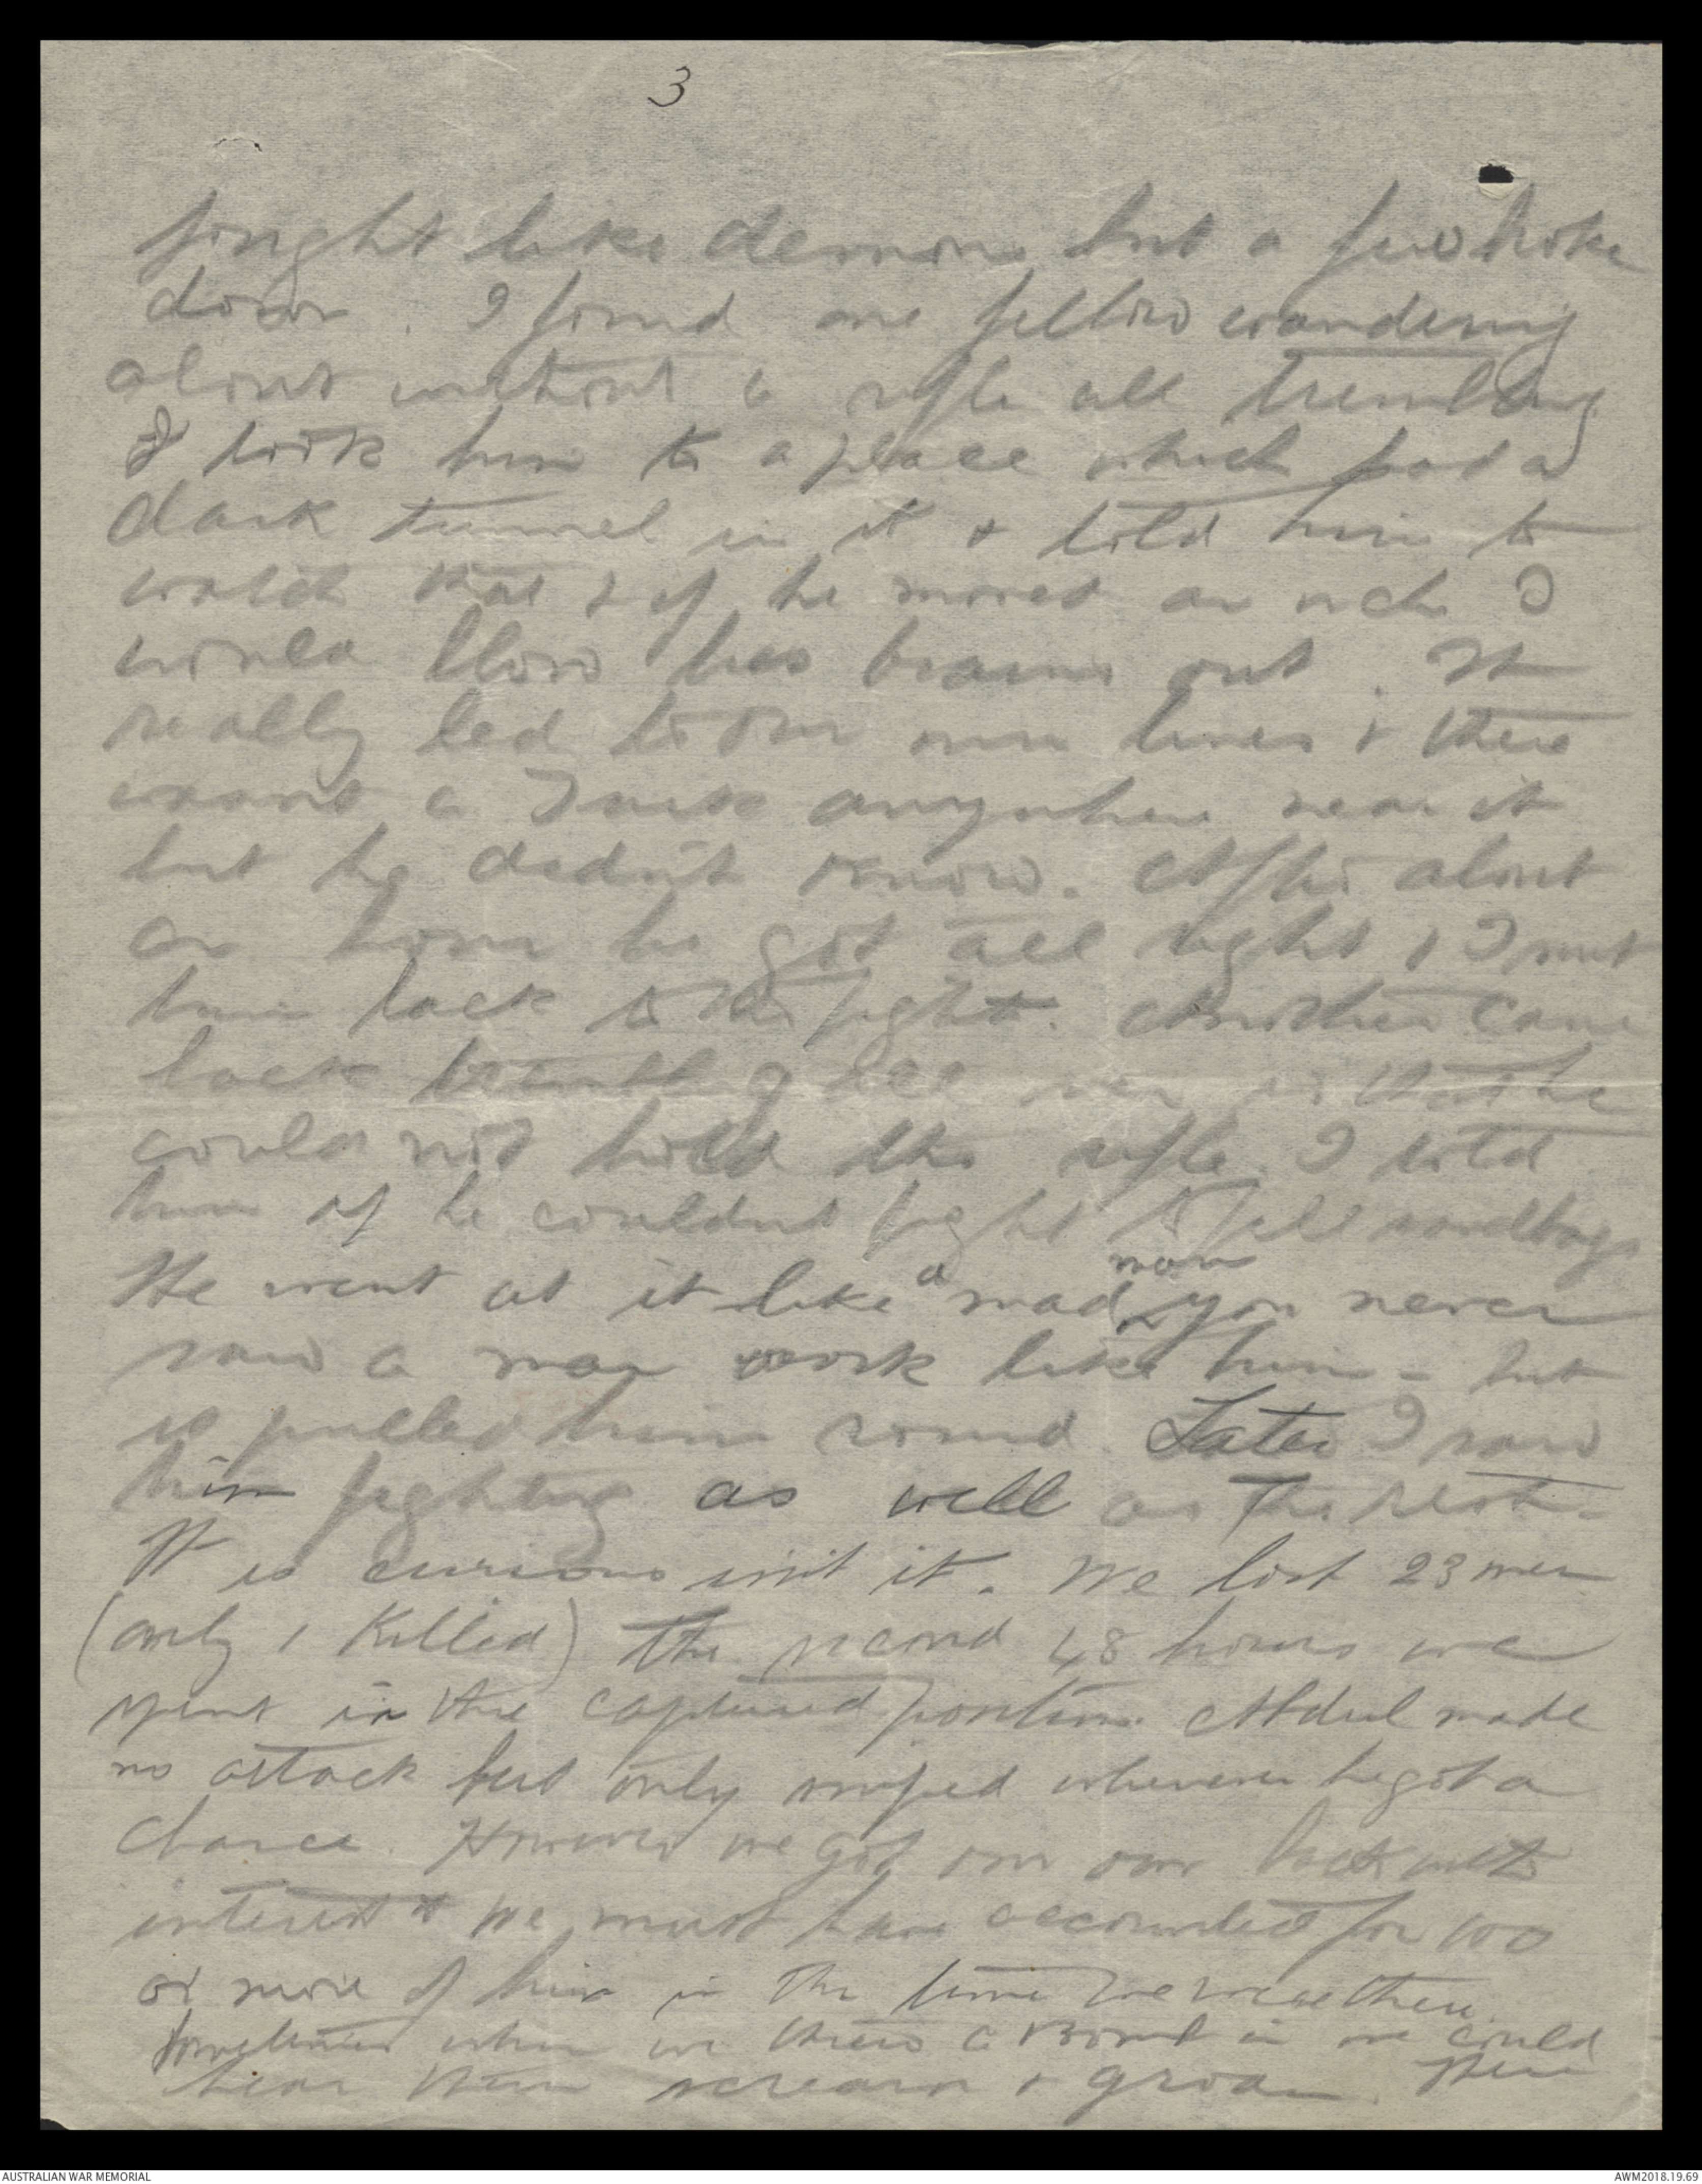 3
fought like demons but a few broke
down. I found one fellow wandering
about without a rifle all trembling
I took him to a place which had a
dark tunnel in it & told him to
watch that & if he moved an inch I
would blow his brains out. It
really led to our own lines & there
wasnt a Turk anywhere near it
but he didn't know. After about
an hour he got all right & I sent
him back to the fight. Another came
back trembling all over so that he
could not hold the rifle. I told
him if he couldnt fight to fill sandbags
He went at it like a mad man you never
saw a man work like him - but
it pulled him round. Later I saw
him fighting as well as the rest.
It is curious isnt it. We lost 23 men
(only 1 Killed) the second 48 hours we
spent in the captured position. Abdul made
no attack but only sniped whenever he got a
chance. However we got our own back with
interest & we must have accounted for 100
or more of him in the time we were there.
Sometimes when we threw a bomb in we could
hear them scream & groan. There
AUSTRALIAN WAR MEMORIAL
AWM2018.19.69